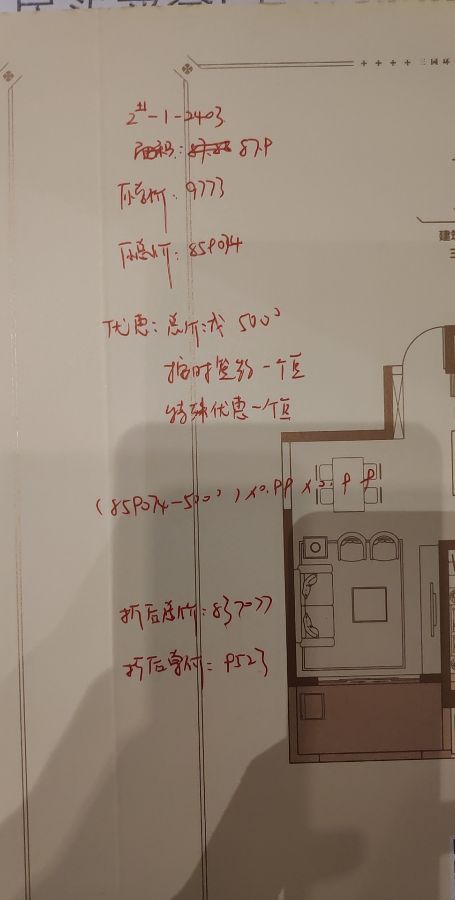 三园环
2#-1-2403
面积: 87.9
原单价: 9773
原总价: 859074
优惠: 总价减 5000
按时签约一个点
特殊优惠一个点
(859074-5000)×0.99×0.99
折后总价: 837077
折后单价: 9523
建筑
三